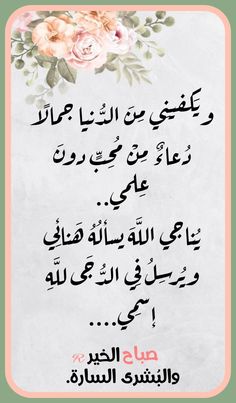 ويكفيني مِنَ الدُّنيا جمالًا
دُعاءٌ مِنْ مُحِبٍّ دونَ
عِلمي..
يُناجي اللَّهَ يسألُهُ هَنائي
ويُرسِلُ في الدُّجَى للَّهِ
إسمِي....
صباح الخير R
والبُشرى السارة.